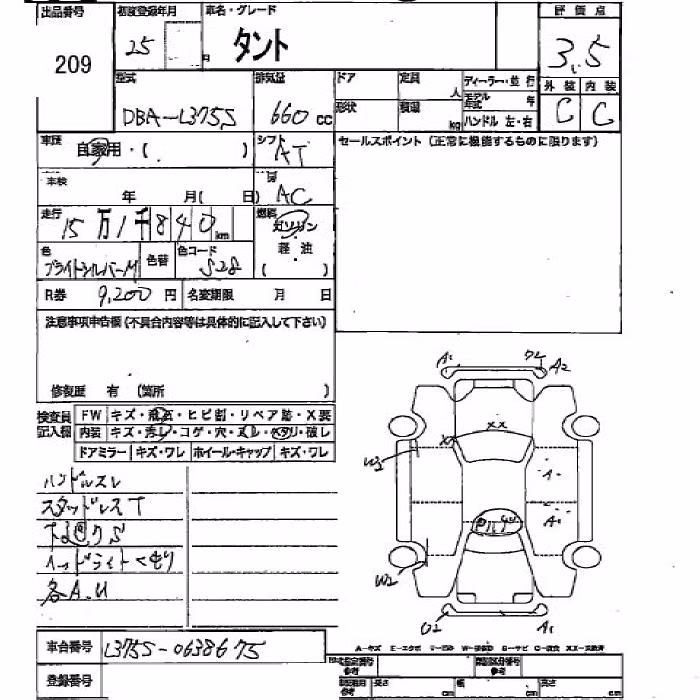 出品番号 初度登録年月 車名・グレード 評価点
209 25 月 タント 3.5
型式 排気量 ドア 定員 人 ディーラー・並行 外装 内装
DBA-L375S 660 cc 形状 積載 kg モデル年式 年 C C
ハンドル 左・右
車歴 自家用・( ) シフト AT セールスポイント (正常に機能するものに限ります)
車検 年 月( 日) AC
走行 15万1千840km 燃料 ガソリン
軽油
( )
色 ブライトシルバーM 色替 色コード S28
R券 9,200円 名変期限 月 日
注意事項申告欄 (不具合内容等は具体的に記入して下さい)
修復歴 有 (箇所 )
検査員記入欄 FW キズ・飛石・ヒビ割・リペア跡・X要
内装 キズ・汚レ・コゲ・穴・スレ・ヘタリ・破レ
ドアミラー キズ・ワレ ホイール・キャップ キズ・ワレ
ハンドルスレ
スタッドレスT
下廻りS
ヘッドライトくもり
各A.U
A1 A2
XX
X
W3 A1
W2 A1
U2 A2
車台番号 L375S-0638675
登録番号
長さ cm 幅 cm 高さ cm